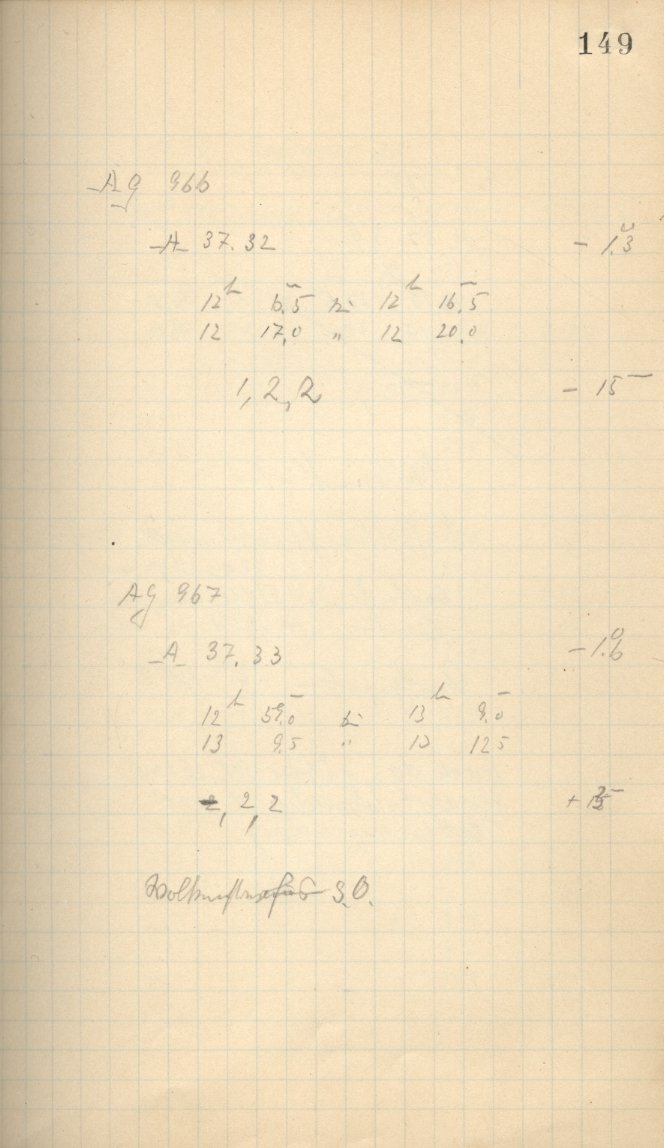 149
Ag 966
A 37.32 - 1.3
12h 6.5m bis 12h 16.5m
12 17.0 " 12 20.0
1, 2, 2 - 15m
Ag 967
A 37.33 - 1.6
12h 59.0m bis 13h 9.0m
13 9.5 " 13 12.5
2, 2 +
S.O.